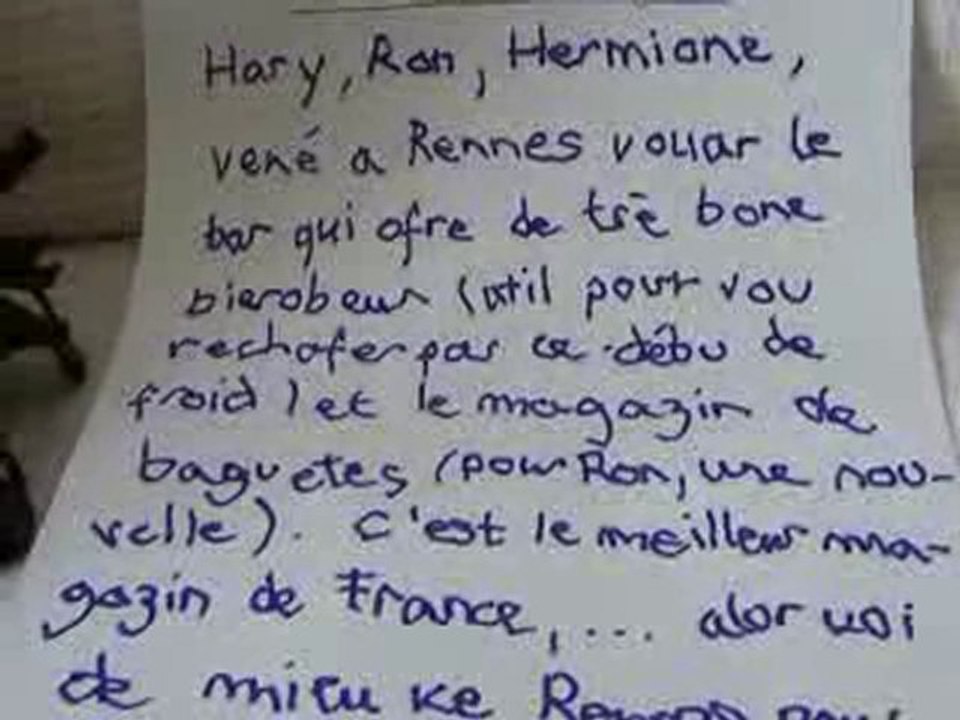 Hary, Ron, Hermione,
vené a Rennes vouar le
bar qui ofre de trè bone
bierobeur (util pour vou
rechofer par ce début de
froid) et le magazin de
baguetes (pour Ron, une nou-
velle). C'est le meilleur ma-
gazin de France, ... alor
de mieu ke